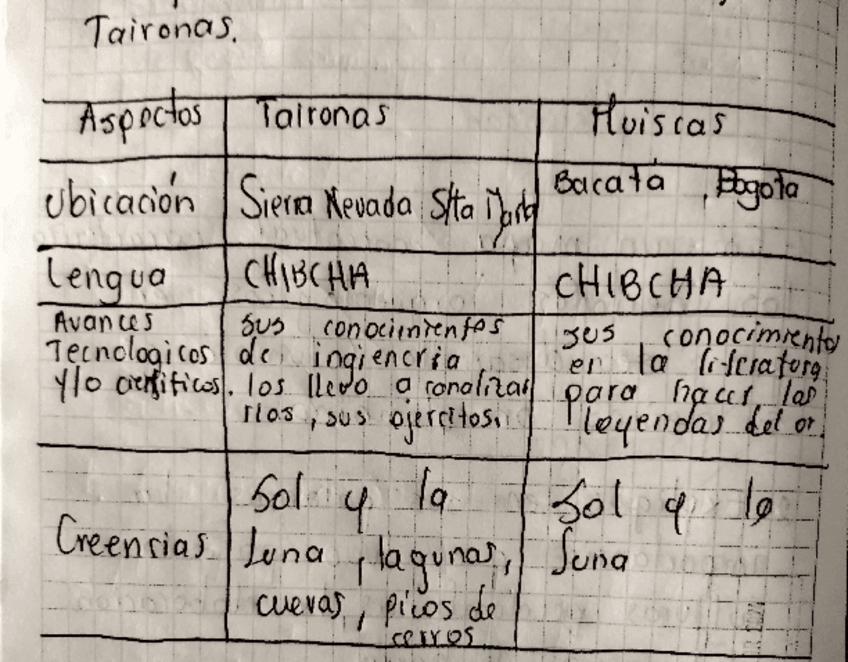 Taironas.
Aspectos Taironas Muiscas
Ubicación Sierra Nevada S/ta Marta Bacatá , Bogota
Lengua CHIBCHA CHIBCHA
Avances sus conocimientos sus conocimiento
Tecnologicos de ingieneria en la literatura
y/o cientificos. los llevo a canalizar para hacer las
rios, sus ejercitos. leyendas del or.
Creencias Sol y la Sol y la
luna , lagunas, luna
cuevas, picos de
cerros